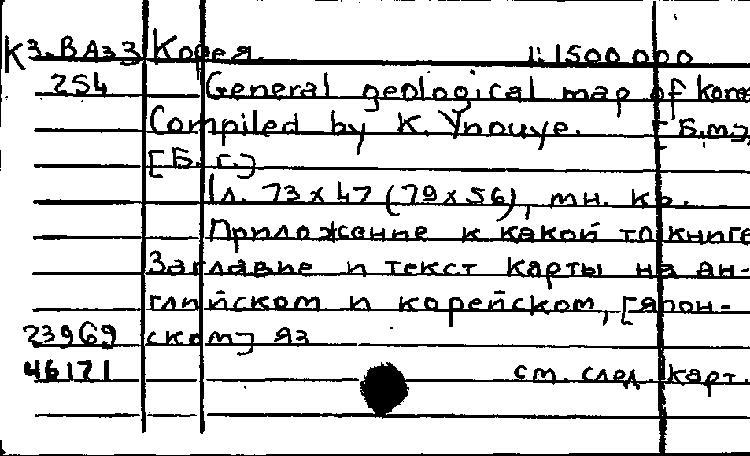 К3.ВАз3 Корея. 1:1500.000
254 General geological map of Kore
Compiled by K. Ynouye. [Б.м.,
[Б. г.]
1л. 73 x 47 (79 x 56), мн. кр.
Приложение к какой то книге
Заглавие и текст карты на ан-
глийском и корейском, [япон-
23969 ском] яз
46171 см. след. карт.